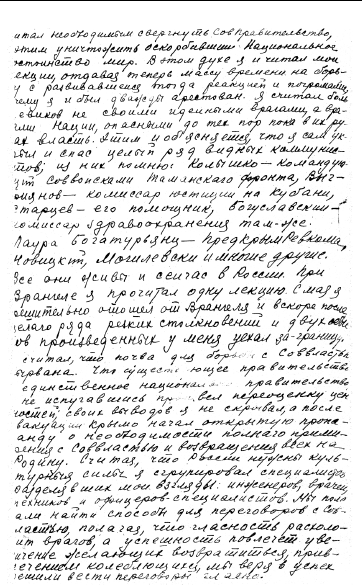 итал необходимым свергнуть СовПравительство,
этим уничтожить оскорбивший Национальное
достоинство мир. В этом духе я и читал мои
лекции, отдавая теперь массу времени на борь-
бу с развивавшейся тогда реакцией и
чему я и был дважды арестован. Я считал боль
шевиков не своими идейными врагами, а вра-
гами Нации, опасными до тех пор пока в их ру
ках власть. Этим и объясняется, что я сам ук-
рыл и спас целый ряд видных коммунис-
тов; из них помню: Колышко - командую-
щий Соввойсками Таманского фронта,
- комиссар юстиции на Кубани,
- его помощник, Богуславский -
комиссар здравоохранения там-же.
Лаура Богатурьянц - предкрымРевкома,
Новицкий, Могилевски и многие другие.
Все они живы и сейчас в России. При
Врангеле я прочитал одну лекцию. С мая я
решительно отошел от Врангеля и вскоре после
целого ряда резких столкновений и двух обыс-
ков произведенных у меня уехал за-границу.
считал, что почва для борьбы с Соввластью
вырвана. Что существующее правительство
единственное национальное правительство
не испугавшись произвел переоценку цен
ностей; своих выводов я не скрывал, а после
эвакуации Крыма начал открытую пропа-
ганду о необходимости полного прими-
рения с Соввластью и возвращения всех на
Родину. Считая, что России нужны куль-
турные силы я сгруппировал специалистов
разделявших мои взгляды: инженеров, врачей,
техников и офицеров-специалистов. Мы
искали способы для переговоров с Сов-
властью, полагая, что гласность расколо-
ит врагов, а успешность повлечет уве-
личение желающих возвратиться, прив-
лечением колеблющихся, мы веря в успех
решили вести переговоры гласно.